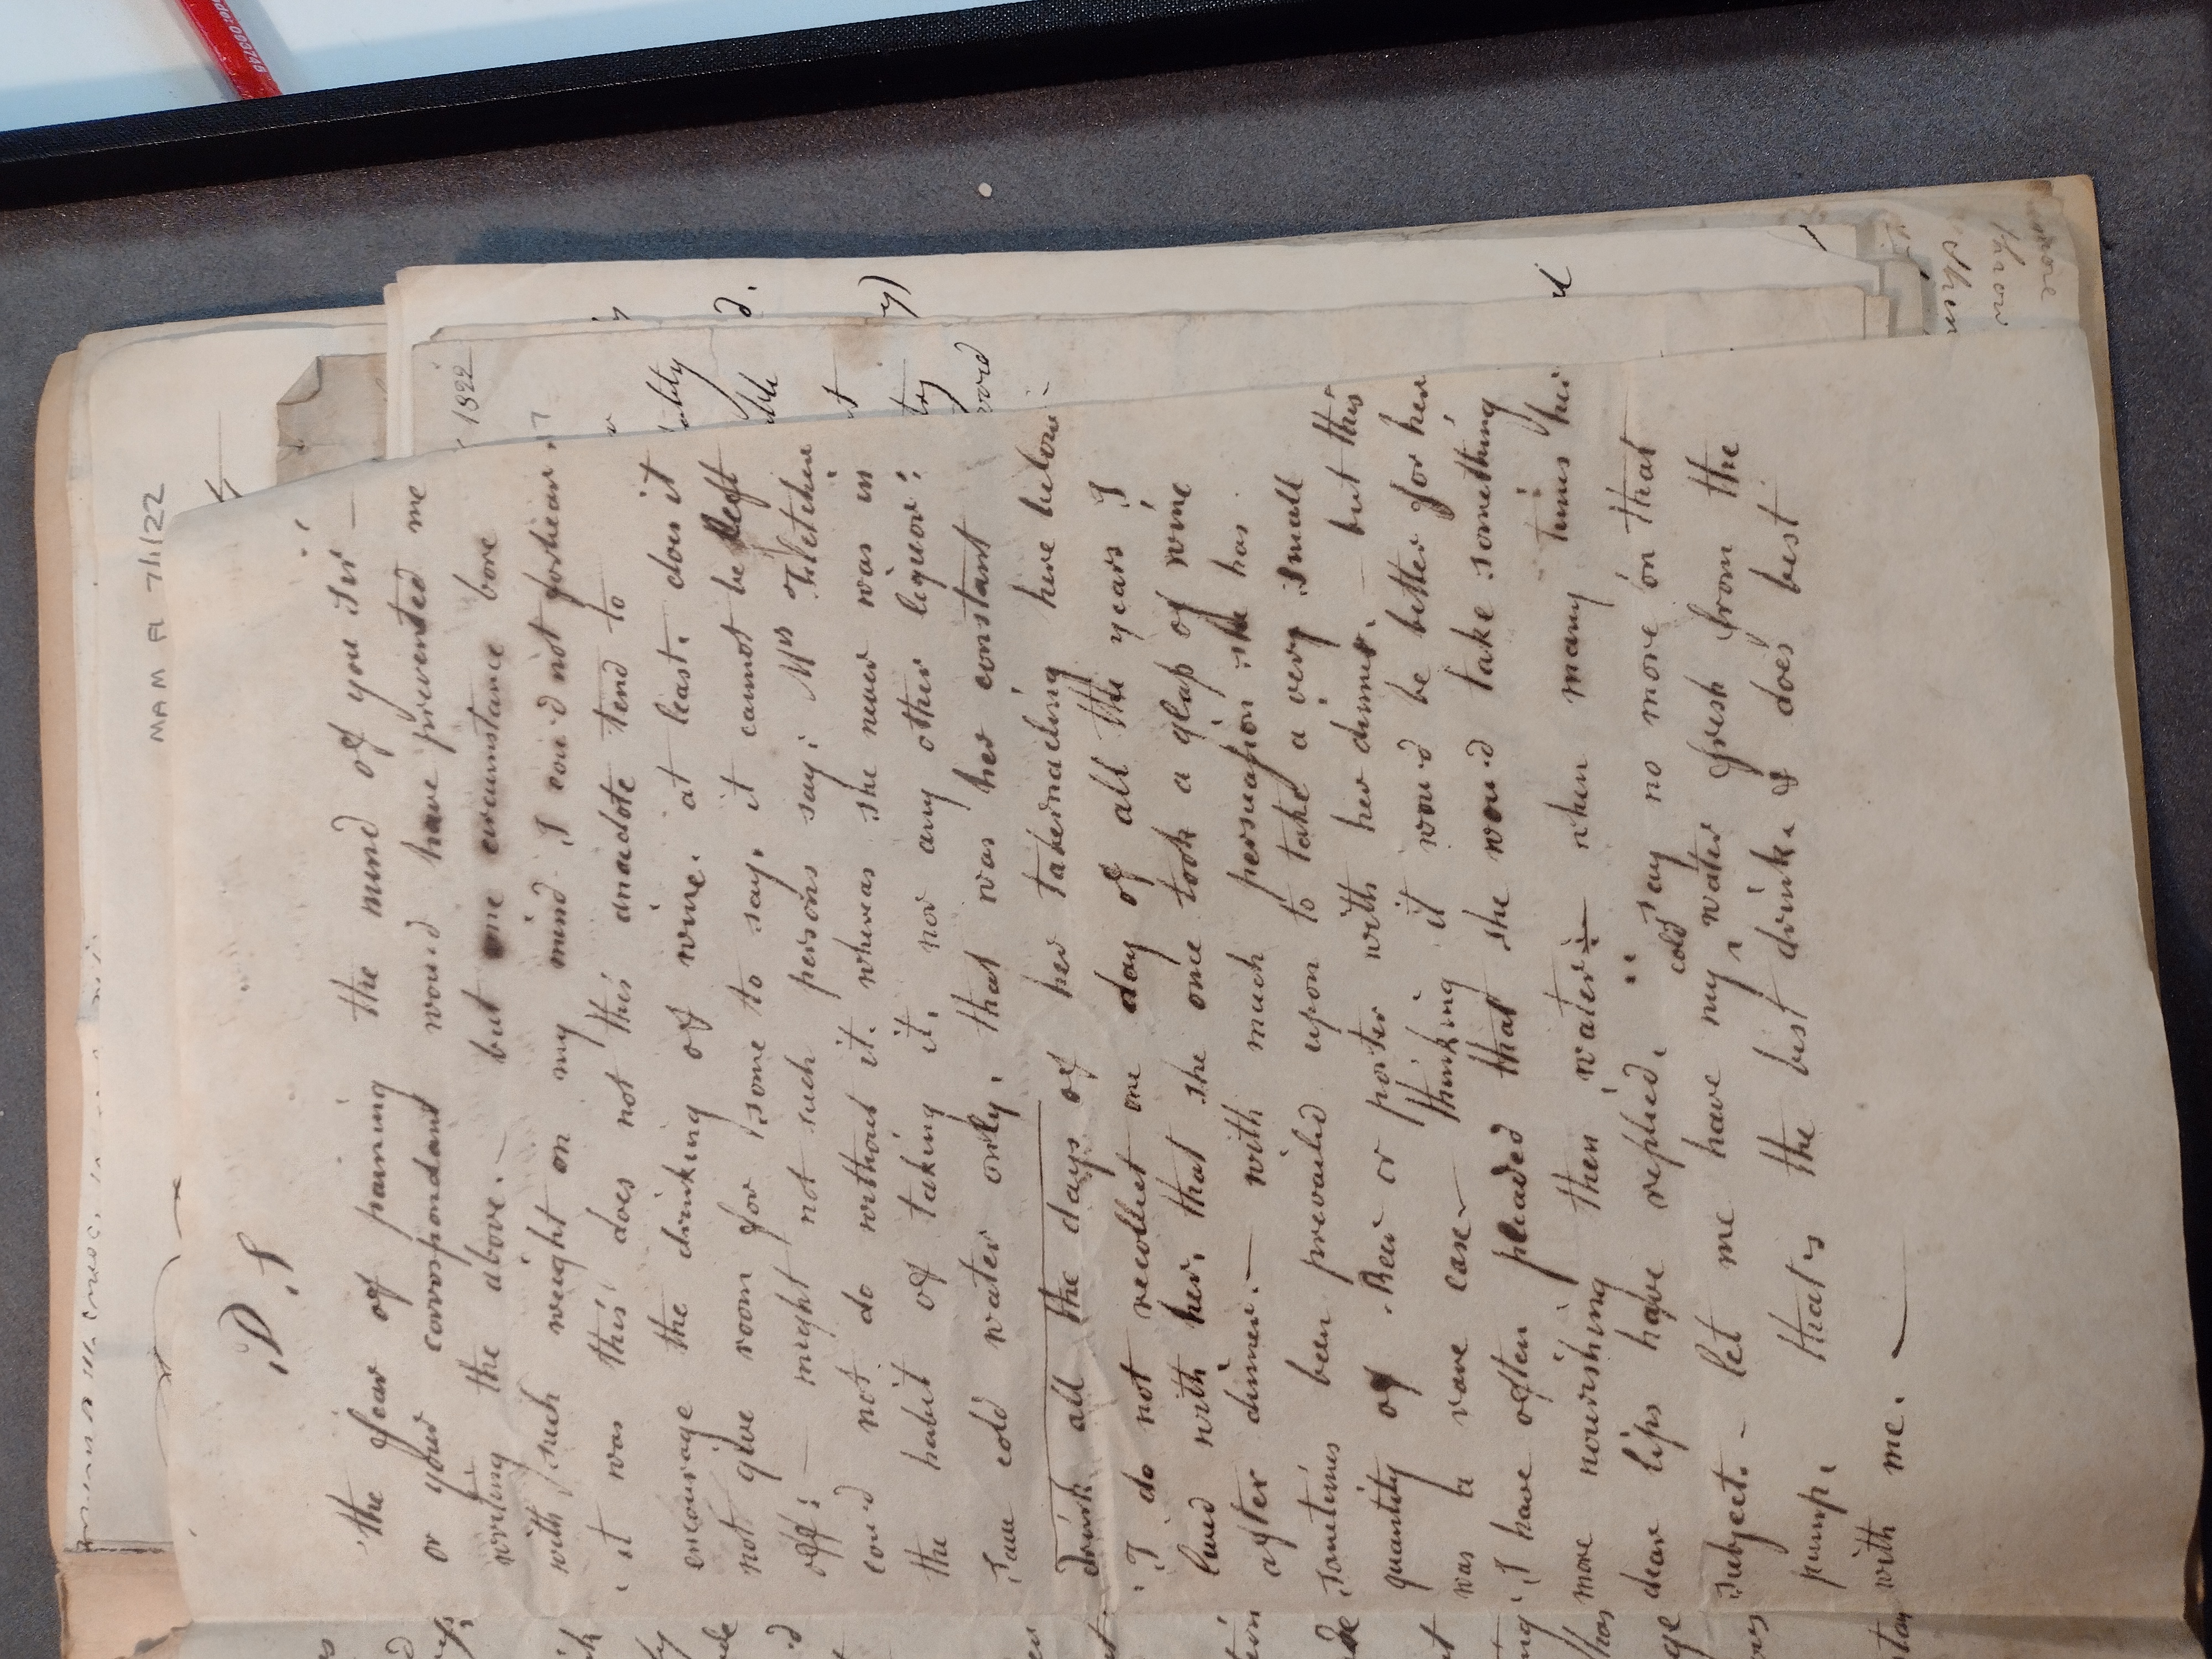 P.S
the fear of paining the mind of you Sir —
or your correspondant wou'd have prevented me
writing the above. — but one circumstance bore
with such weight on my mind I cou'd not forbear.
it was this does not this anacdote tend to
encourage the drinking of wine. at least. does it
not give room for some to say. it cannot be left
off: — might not such persons say: Mrs Fletcher
cou'd not do without it. whereas she never was in
the habit of taking it. nor any other liquor:
Pure cold water only. that was her constant
drink all the days of her tabernacling here below:
I do not recollect one day of all the years I
lived with her. that she once took a glass of wine
after dinner. — with much persuasion she has
sometimes been prevailed upon to take a very small
quantity of Beer or porter with her dinner. — but this
was a rare case — thinking it wou'd be better for her
I have often pleaded that she wou'd take something
more nourishing then water — when many times her
dear lips have replied. say no more on that
subject. — let me have my cold water fresh from the
pump. that's the best drink. & does best
with me.
MAM Fl 7/1/22
1822